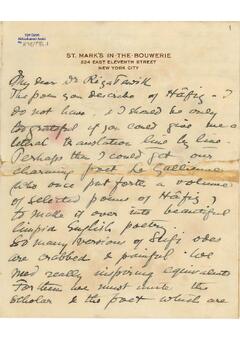 1
ST. MARK'S IN-THE-BOUWERIE
234 EAST ELEVENTH STREET
NEW YORK CITY
My dear Dr Riza Tevfik
The poem you describe of Hafiz - I
do not have, & I should be only
too grateful if you could give me a
literal translation line by line.
Perhaps then I could get our
charming poet Le Gallienne
(who once put forth a volume
of selected poems of Hafiz)
to make it over into beautiful
limpid English poetry.
So many versions of Sufi odes
are crabbed & painful. We
need really inspiring equivalents
For them we must unite the
scholar & the poet which are